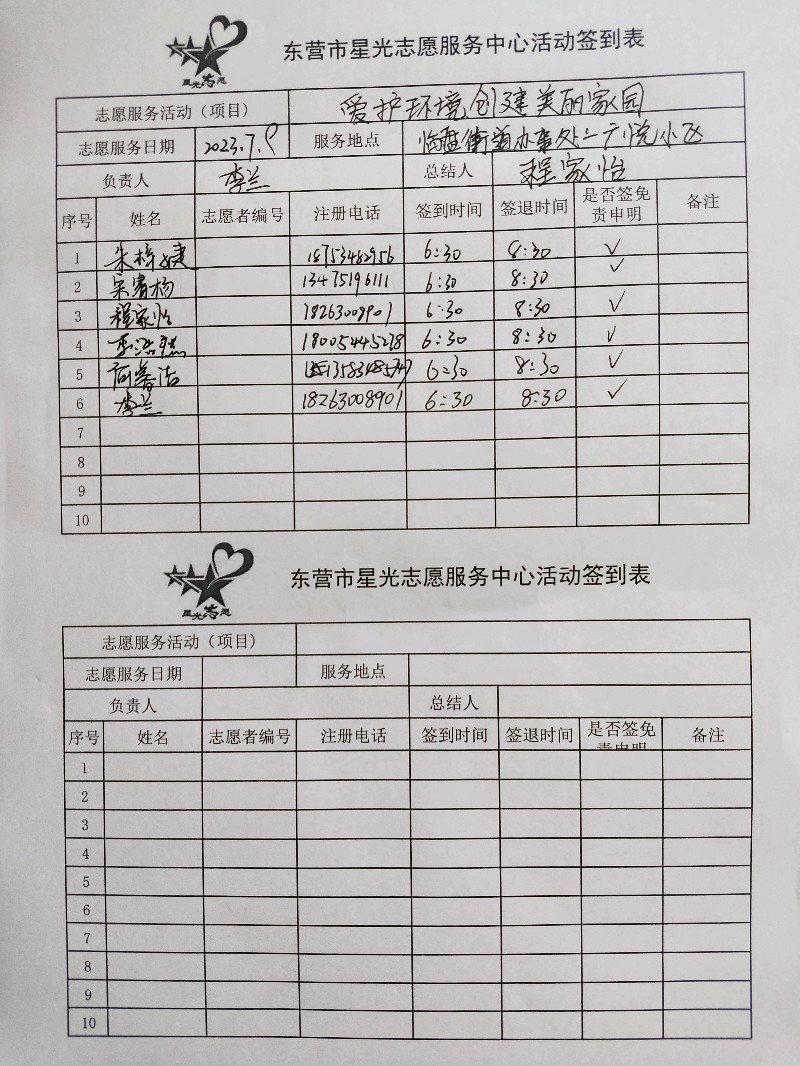 星光志愿
东营市星光志愿服务中心活动签到表
志愿服务活动（项目） 爱护环境创建美丽家园
志愿服务日期 2023.7.9 服务地点 临盘街道办事处
负责人 李兰 总结人 程家怡
序号 姓名 志愿者编号 注册电话 签到时间 签退时间 是否签免责申明 备注
1 朱梓婕 18753482956 6:30 8:30 ✓
2 宋青杨 13475196111 6:30 8:30 ✓
3 程家怡 18263008901 6:30 8:30 ✓
4 18005445278 6:30 8:30 ✓
5 6:30 8:30 ✓
6 李兰 18263008901 6:30 8:30 ✓
7
8
9
10
星光志愿
东营市星光志愿服务中心活动签到表
志愿服务活动（项目）
志愿服务日期 服务地点
负责人 总结人
序号 姓名 志愿者编号 注册电话 签到时间 签退时间 是否签免责申明 备注
1
2
3
4
5
6
7
8
9
10